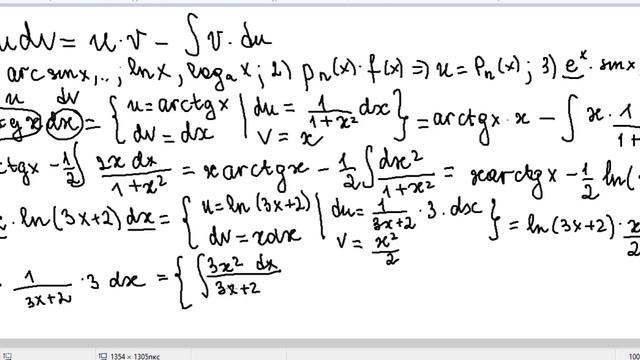 udv = u·v − ∫ v·du
arcsinx,..; lnx, logₐx; 2) Pₙ(x)·f(x) ⇒ u = Pₙ(x); 3) eˣ·sinx
u dv
gx dx = { u = arctgx | du = 1/(1+x²) dx } = arctgx·x − ∫ x·1/(1+
dv = dx | v = x
ctgx − 1/2 ∫ 2x dx/(1+x²) = x arctgx − 1/2 ∫ dx²/(1+x²) = xarctgx − 1/2 ln(
·ln(3x+2) dx = { u = ln(3x+2) | du = 1/(3x+2)·3·dx } = ln(3x+2)·x/2
dv = xdx | v = x²/2
1/(3x+2)·3 dx = { ∫ 3x² dx/(3x+2)
1354 × 1305пкс
100